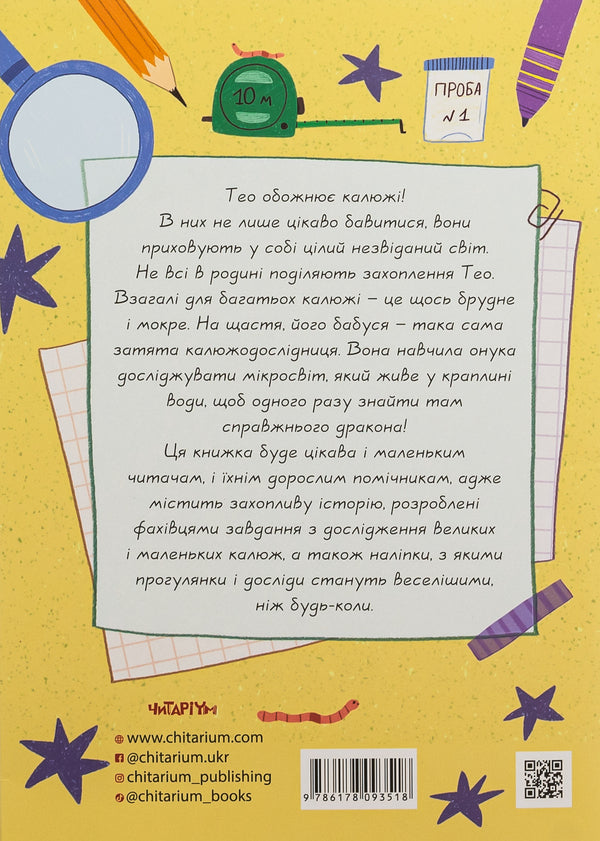 10 м
ПРОБА
№1
Тео обожнює калюжі!
В них не лише цікаво бавитися, вони
приховують у собі цілий незвіданий світ.
Не всі в родині поділяють захоплення Тео.
Взагалі для багатьох калюжі – це щось брудне
і мокре. На щастя, його бабуся – така сама
затята калюжодослідниця. Вона навчила онука
досліджувати мікросвіт, який живе у краплині
води, щоб одного разу знайти там
справжнього дракона!
Ця книжка буде цікава і маленьким
читачам, і їхнім дорослим помічникам, адже
містить захопливу історію, розроблені
фахівцями завдання з дослідження великих
і маленьких калюж, а також наліпки, з якими
прогулянки і досліди стануть веселішими,
ніж будь-коли.
ЧИТАРІУМ
www.chitarium.com
@chitarium.ukr
chitarium_publishing
@chitarium_books
9 786178 093518